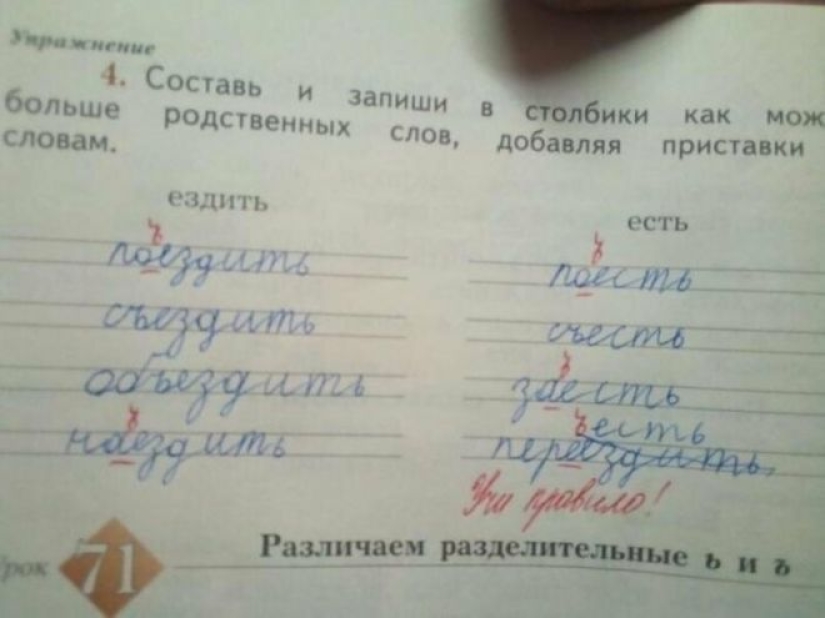 Упражнение
4. Составь и запиши в столбики как мож
больше родственных слов, добавляя приставки
словам.
ездить есть
ъ ъ
поездить поесть
съездить съесть
ъ
объездить заесть
ъ ъесть
наездить переездить,
Учи правило!
урок 71 Различаем разделительные ь и ъ